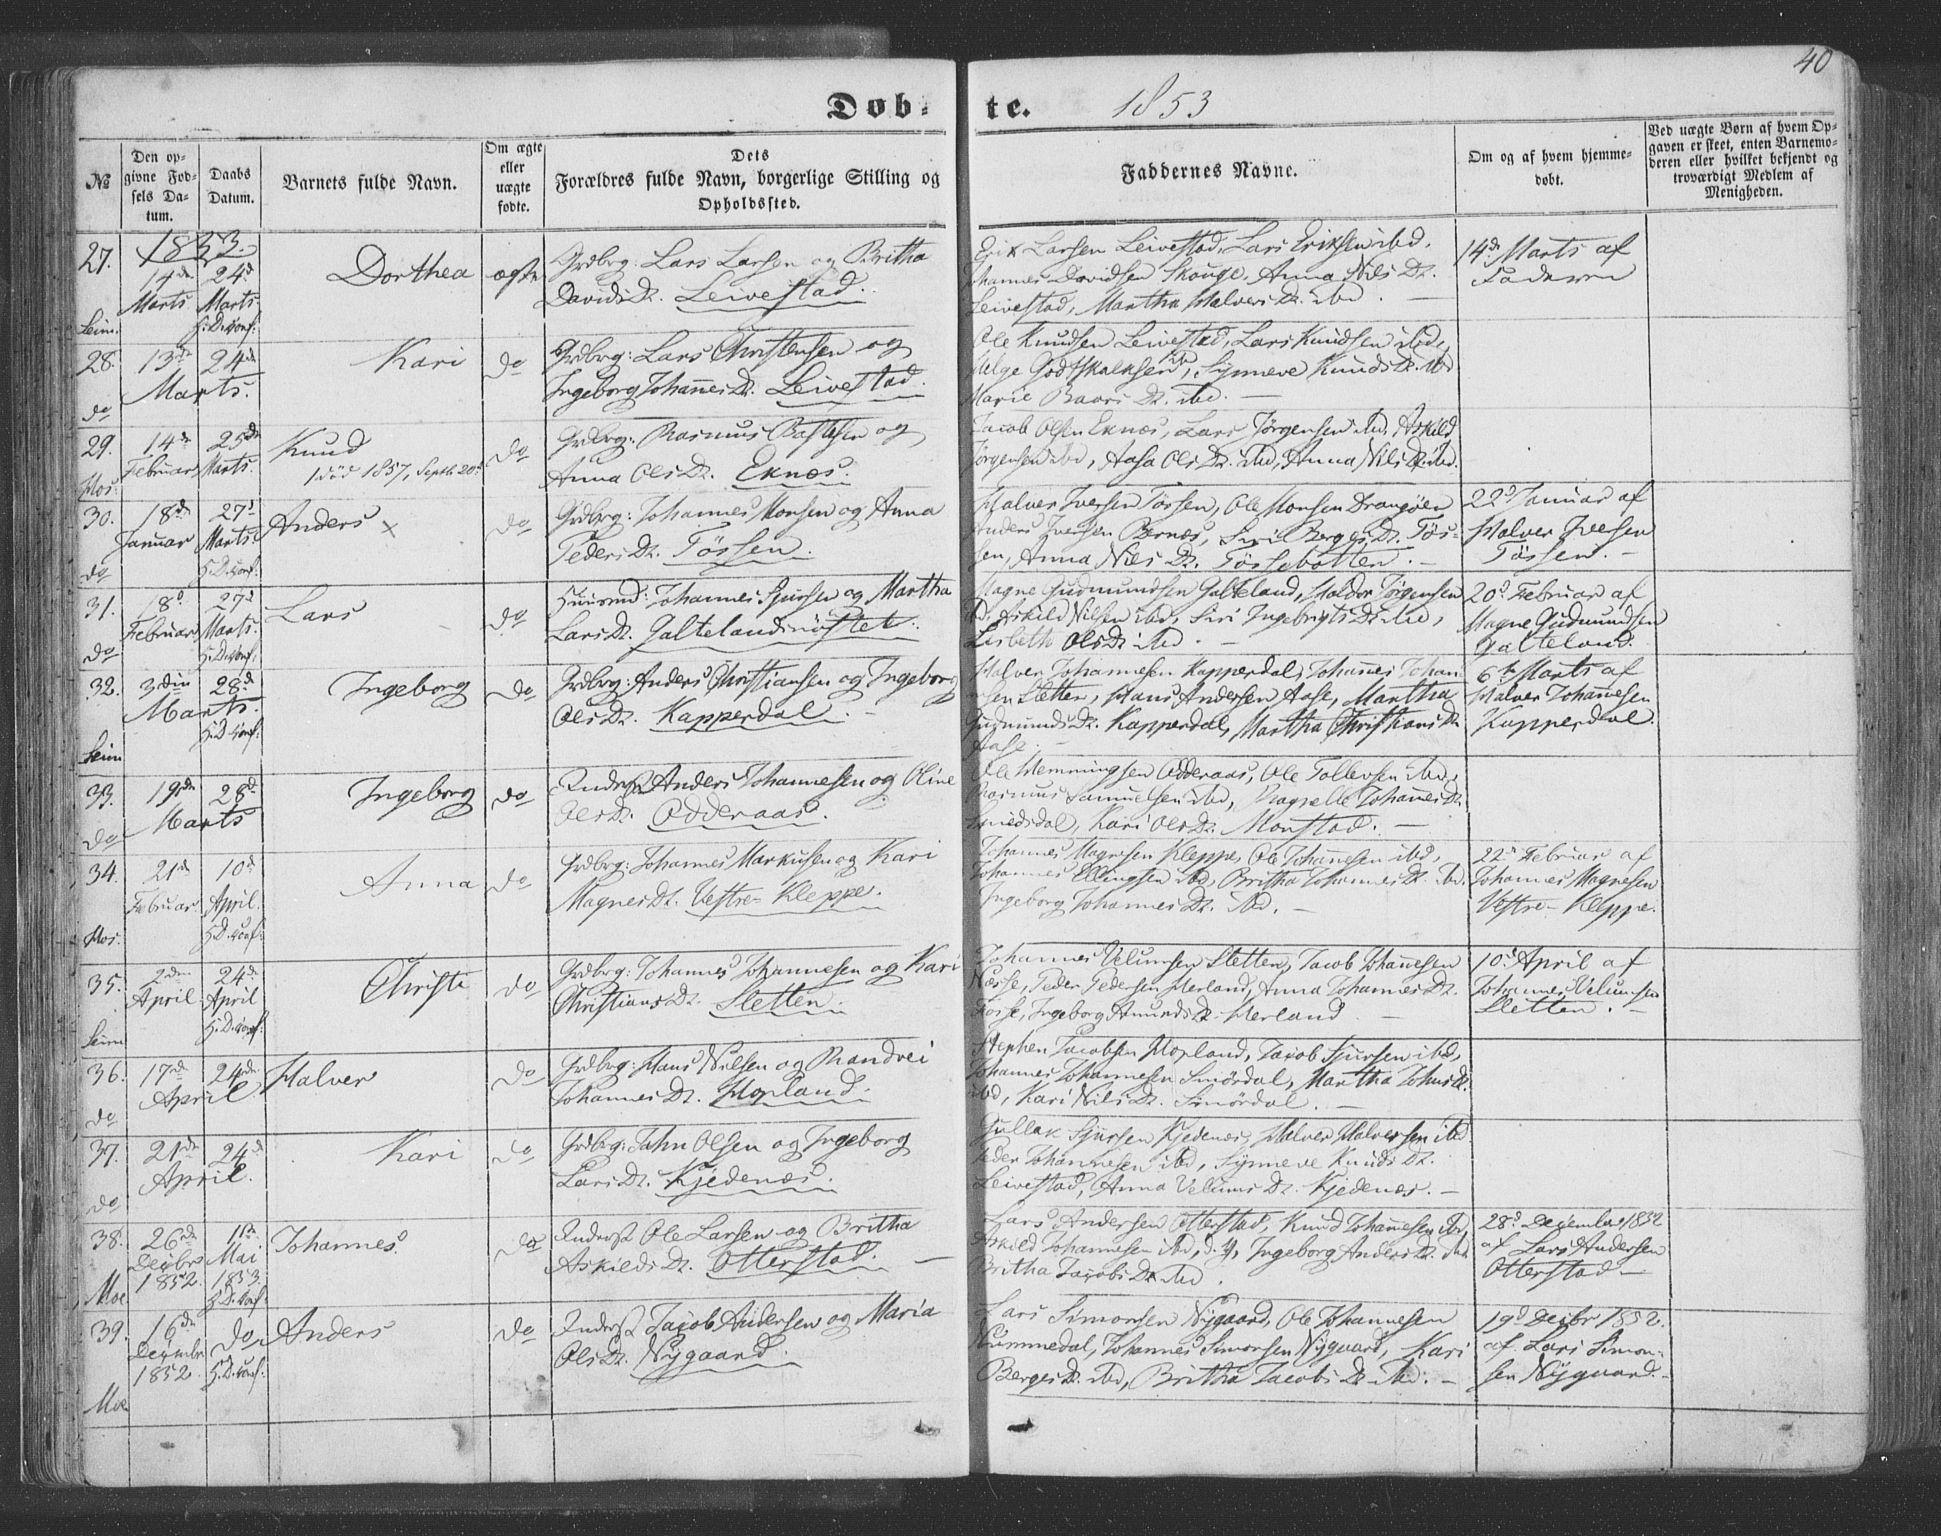 40
Døb- te. 1853
No
Den opgivne Fødsels Datum.
Daabs Datum.
Barnets fulde Navn.
Om ægte eller uægte fødte.
Dets Forældres fulde Navn, borgerlige Stilling og Opholdssted.
Faddernes Navne.
Om og af hvem hjemmedøbt.
Ved uægte Børn af hvem Opgaven er skeet, enten Barnemoderen eller hvilket bekjendt og troværdigt Medlem af Menigheden.
27. 1853. 14de Marts 24d Marts. Dorthea ægte
Seim.
Grdbrg: Lars Larsen og Britha
Davids Dr. Leivestad.
Erik Larsen Leivestad, Lars Eriksen ibd,
Johannes Davidsen Skouge, Anna Nils Dr.
Leivestad, Martha Halvers Dr. ibd.
14de Marts af
Faderen
28. 13de 24de Marts. Kari do
do
Grdbrg: Lars Christensen og
Ingeborg Johannes Dr. Leivestad.
Ole Knudsen Leivestad, Lars Knudsen ibd,
Helge Godtskalksen ibd, Synneve Knuds Dr. ibd
Marie Baars Dr. ibd.
29. 14de Februar 25de Marts. Knud do
død 1857, Septb. 20.
Hos.
Grdbrg: Rasmus Bastesen og
Anna Ols Dr. Eknæs.
Jacob Olsen Eknæs, Lars Jørgensen ibd, Askild
Jørgensen ibd, Aasa Ols Dr. ibd, Anna Nils Dr. ibd.
30. 18de Januar 27d Marts. Anders × do
do
Grdbrg: Johannes Monsen og Anna
Peders Dr. Tössen.
Halver Iversen Tössen, Ole Monsen Drangöen
Anders Iversen Bernæs, Siri Berges Dr. Tös-
sen, Anna Nils Dr. Tössebotten.
22d Januar af
Halver Iversen
Tössen.
31. 18d Februar 27d Marts. Lars do
do
Huusmd: Johannes Sjursen og Martha
Lars Dr. Galtelandsnöstet.
Magne Gudmundsen Galteland, Haldor Jørgensen
ibd, Askild Nilsen ibd, Siri Ingebrigts Dr. ibd,
Lisbeth Ols Dr. ibd.
20d Februar af
Magne Gudmundsen
Galteland.
32. 3die 28d Marts. Ingeborg do
Seim
Grdbrg: Anders Christiansen og Ingeborg
Ols Dr. Kapperdal.
Halver Johannesen Kapperdal, Johannes Johan-
nesen Sletten, Hans Andersen Aase, Martha
Gudmunds Dr. Kapperdal, Martha Christians Dr.
Aase.
6te Marts af
Halver Johannesen
Kapperdal.
33. 19de 28d Marts Ingeborg do
do
Anders Johannesen og Oline
Ols Dr. Odderaas.
Ole Hemmingsen Odderaas, Ole Tollevsen ibd,
Rasmus Samuelsen ibd, Johannes Dr.
Kari Ols Dr. Monstad.
34. 21de Februar. 10d April. Anna do
Hos.
Grdbrg: Johannes Markusen og Kari
Magnes Dr. Vestre-Kleppe.
Johannes Magnesen Kleppe, Ole Johannesen ibd,
Johannes Ellingsen ibd, Britha Johannes Dr. ibd.
Ingeborg Johannes Dr. ibd.
22d Februar af
Johannes Magnesen
Vestre-Kleppe.
35. 2den April 24de April Christi do
Seim
Grdbrg: Johannes Johannesen og Kari
Christians Dr. Sletten.
Johannes Velumsen Sletten, Jacob Johannesen
Næsse, Peder Pedersen Herland, Anna Johannes Dr.
Fosse, Ingeborg Amunds Dr. Herland
10d April af
Johannes Velumsen
Sletten.
36. 17de 24de April Halver do
do
Grdbrg: Hans Nilsen og Randvei
Johannes Dr. Hopland.
Stephen Jacobsen Hopland, Jacob Sjursen ibd,
Johannes Johannesen Smördal, Martha Johns Dr.
ibd, Kari Nils Dr. Smördal.
37. 21de 24d April. Kari do
do
Grdbrg: John Olsen og Ingeborg
Lars Dr. Kjedenæs.
Gullak Sjursen Kjedenæs, Halver Halversen ibd
Peder Johannesen ibd, Synneve Knuds Dr.
Leivestad, Anna Velums Dr. Kjedenæs.
38. 26de Decbr 1852. 1ste Mai 1853. Johannes. do
Moe
Ole Larsen og Britha
Askilds Dr. Otterstad.
Lars Andersen Otterstad, Knud Johannesen ibd,
Askild Johannesen ibd, d. y, Ingeborg Anders Dr. ibd.
Britha Jacobs Dr. ibd.
28d December 1852
af Lars Andersen
Otterstad
39. 16de Decembr 1852. do Anders do
Moe
Jacob Andersen og Maria
Ols Dr. Nygaard.
Lars Simonsen Nygaard, Ole Johannesen
Nummedal, Johannes Simonsen Nygaard, Kari
Berges Dr. ibd, Britha Jacobs Dr. ibd.
19d Decbr 1852.
af Lars Simon-
sen Nygaard.